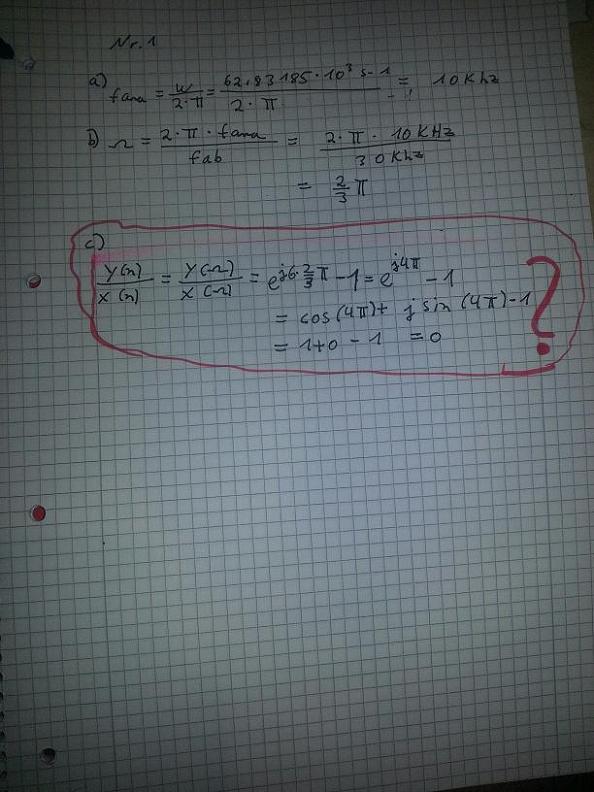 Nr. 1
a) fana = w / 2·π = 62,83185·10³ s-1 / 2·π = 10 Khz
b) Ω = 2·π·fana / fab = 2·π·10 KHz / 30 Khz
= 2/3 π
c)
Y(n) / X(n) = Y(Ω) / X(Ω) = e^j6·2/3π - 1 = e^j4π - 1
= cos(4π) + j sin(4π) - 1
= 1+0 - 1 = 0
?